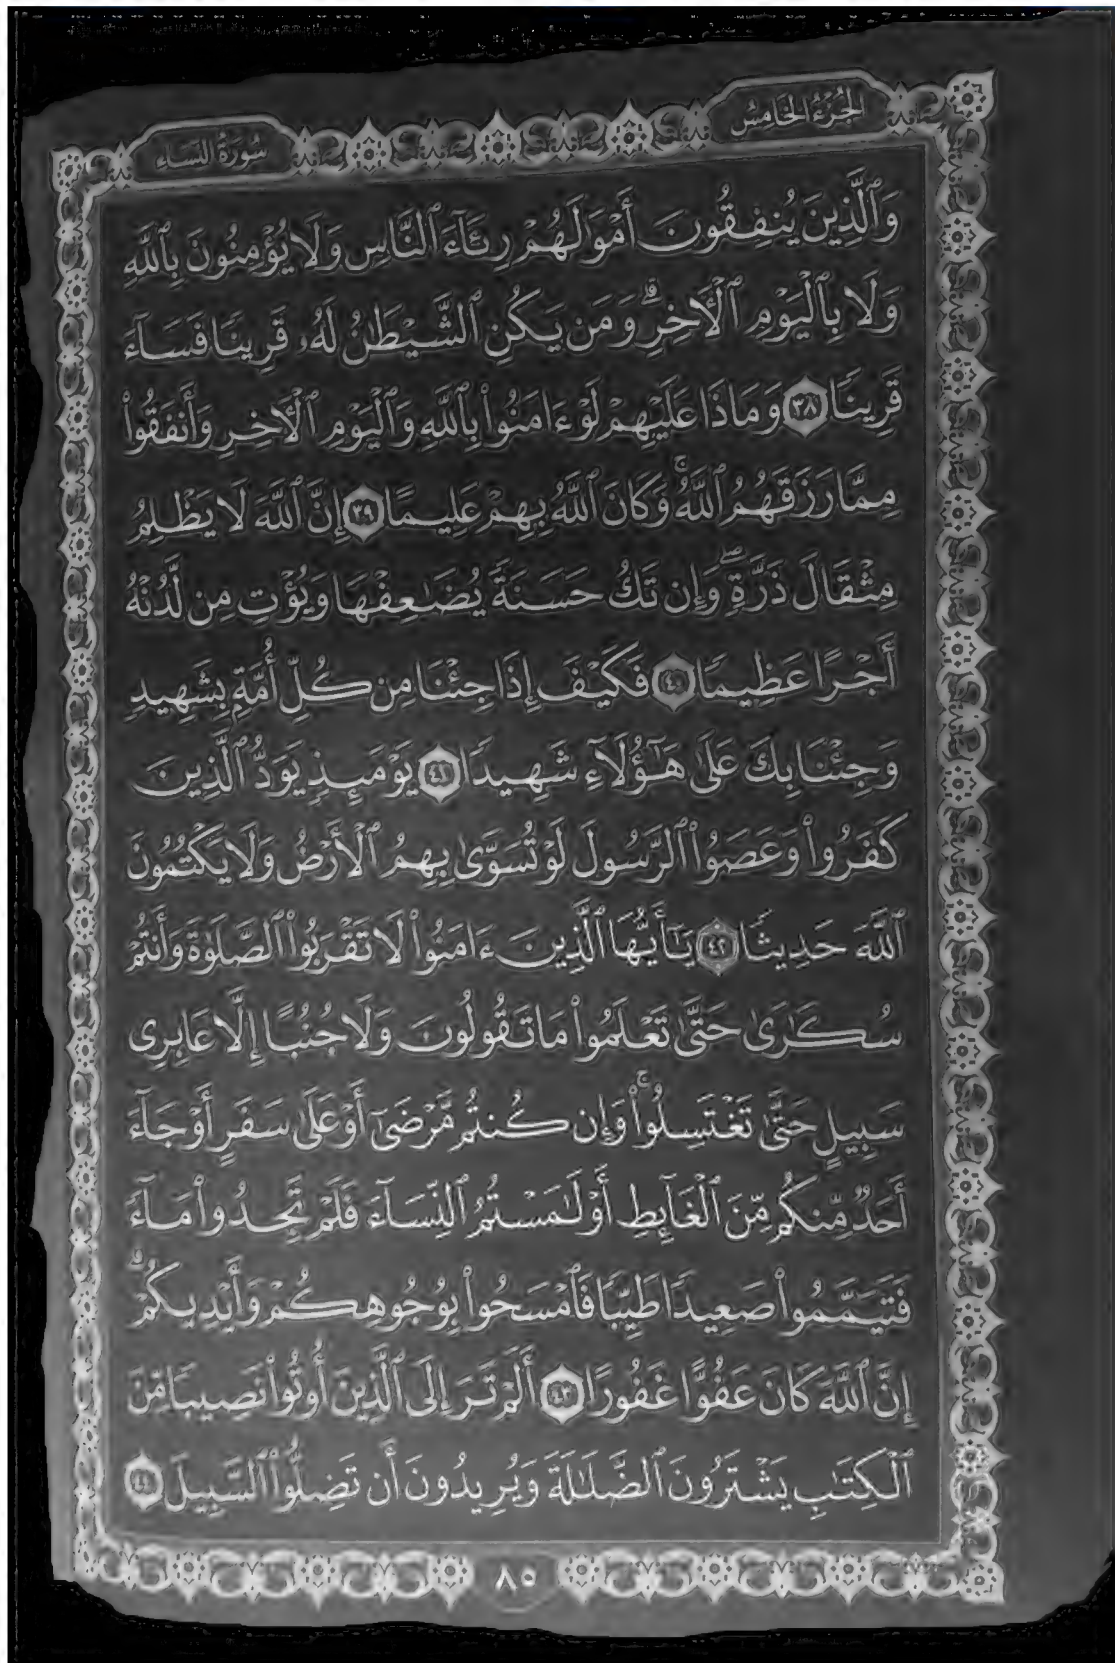 الجُزْءُ الخَامِسُ
سُورَةُ النِّسَاءِ
وَٱلَّذِينَ يُنفِقُونَ أَمْوَٰلَهُمْ رِئَآءَ ٱلنَّاسِ وَلَا يُؤْمِنُونَ بِٱللَّهِ
وَلَا بِٱلْيَوْمِ ٱلْأَخِرِ ۗ وَمَن يَكُنِ ٱلشَّيْطَٰنُ لَهُۥ قَرِينًا فَسَآءَ
قَرِينًا ٣٨ وَمَاذَا عَلَيْهِمْ لَوْ ءَامَنُوا۟ بِٱللَّهِ وَٱلْيَوْمِ ٱلْأَخِرِ وَأَنفَقُوا۟
مِمَّا رَزَقَهُمُ ٱللَّهُ ۚ وَكَانَ ٱللَّهُ بِهِمْ عَلِيمًا ٣٩ إِنَّ ٱللَّهَ لَا يَظْلِمُ
مِثْقَالَ ذَرَّةٍ ۖ وَإِن تَكُ حَسَنَةً يُضَٰعِفْهَا وَيُؤْتِ مِن لَّدُنْهُ
أَجْرًا عَظِيمًا ٤٠ فَكَيْفَ إِذَا جِئْنَا مِن كُلِّ أُمَّةٍۭ بِشَهِيدٍ
وَجِئْنَا بِكَ عَلَىٰ هَٰٓؤُلَآءِ شَهِيدًا ٤١ يَوْمَئِذٍ يَوَدُّ ٱلَّذِينَ
كَفَرُوا۟ وَعَصَوُا۟ ٱلرَّسُولَ لَوْ تُسَوَّىٰ بِهِمُ ٱلْأَرْضُ وَلَا يَكْتُمُونَ
ٱللَّهَ حَدِيثًا ٤٢ يَٰٓأَيُّهَا ٱلَّذِينَ ءَامَنُوا۟ لَا تَقْرَبُوا۟ ٱلصَّلَوٰةَ وَأَنتُمْ
سُكَٰرَىٰ حَتَّىٰ تَعْلَمُوا۟ مَا تَقُولُونَ وَلَا جُنُبًا إِلَّا عَابِرِى
سَبِيلٍ حَتَّىٰ تَغْتَسِلُوا۟ ۚ وَإِن كُنتُم مَّرْضَىٰٓ أَوْ عَلَىٰ سَفَرٍ أَوْ جَآءَ
أَحَدٌ مِّنكُم مِّنَ ٱلْغَآئِطِ أَوْ لَٰمَسْتُمُ ٱلنِّسَآءَ فَلَمْ تَجِدُوا۟ مَآءً
فَتَيَمَّمُوا۟ صَعِيدًا طَيِّبًا فَٱمْسَحُوا۟ بِوُجُوهِكُمْ وَأَيْدِيكُمْ ۗ
إِنَّ ٱللَّهَ كَانَ عَفُوًّا غَفُورًا ٤٣ أَلَمْ تَرَ إِلَى ٱلَّذِينَ أُوتُوا۟ نَصِيبًا مِّنَ
ٱلْكِتَٰبِ يَشْتَرُونَ ٱلضَّلَٰلَةَ وَيُرِيدُونَ أَن تَضِلُّوا۟ ٱلسَّبِيلَ ٤٤
٨٥